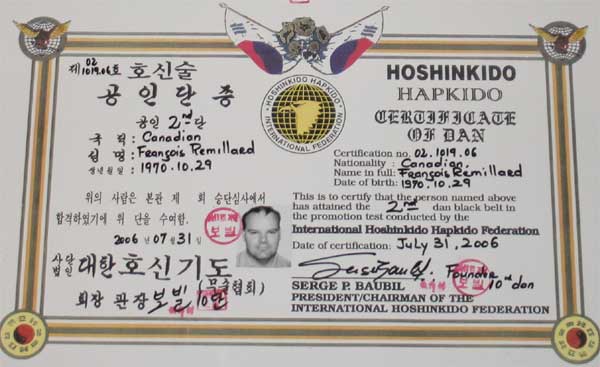 제 02 1019.06호 호신술
공인단증
공인 2nd 단
국 적 : Canadian
성 명 : François Remillard
생년월일 : 1970.10.29
위의 사람은 본관 제 회 승단심사에서
합격하였기에 위 단을 수여함.
2006 년 07 월 31 일
사단법인 대한호신기도
(무술협회)
회장 관장 보빌 10단
HOSHINKIDO HAPKIDO
INTERNATIONAL FEDERATION
HOSHINKIDO
HAPKIDO
CERTIFICATE
OF DAN
Certification no. 02.1019.06
Nationality : Canadian.
Name in full: François Remillard
Date of birth: 1970.10.29
This is to certify that the person named above
has attained the 2nd dan black belt in
the promotion test conducted by the
International Hoshinkido Hapkido Federation
Date of certification: July 31, 2006
Founder
10 dan
SERGE P. BAUBIL
PRESIDENT/CHAIRMAN OF THE
INTERNATIONAL HOSHINKIDO FEDERATION